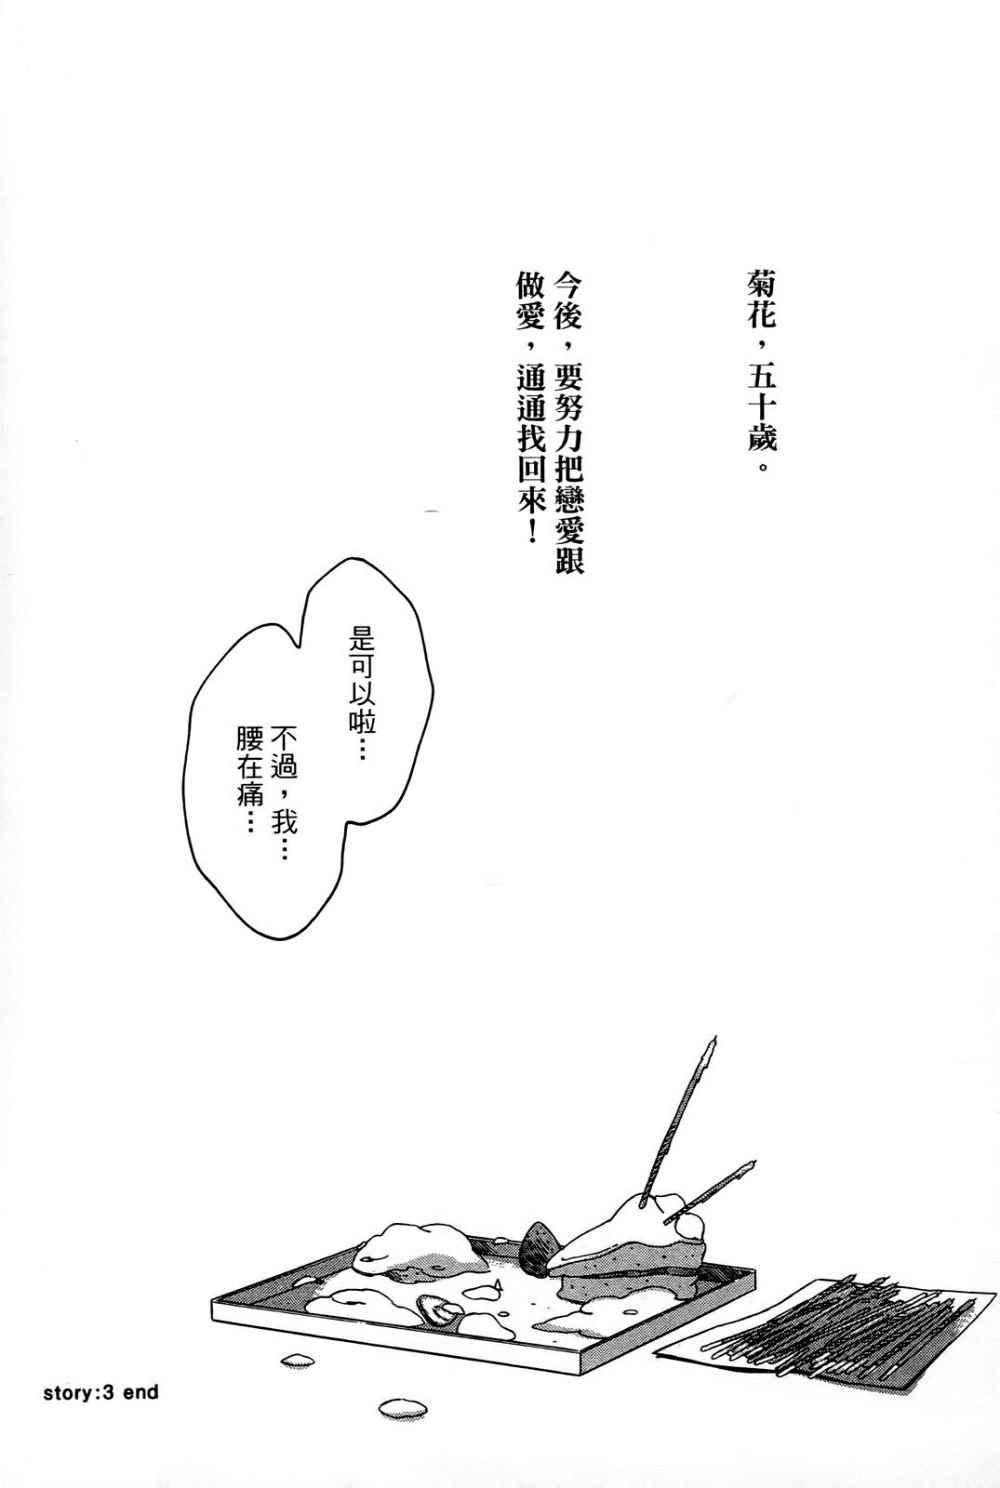 菊花，五十歲。
今後，要努力把戀愛跟
做愛，通通找回來！
是可以啦…
不過，我…
腰在痛…
story:3 end